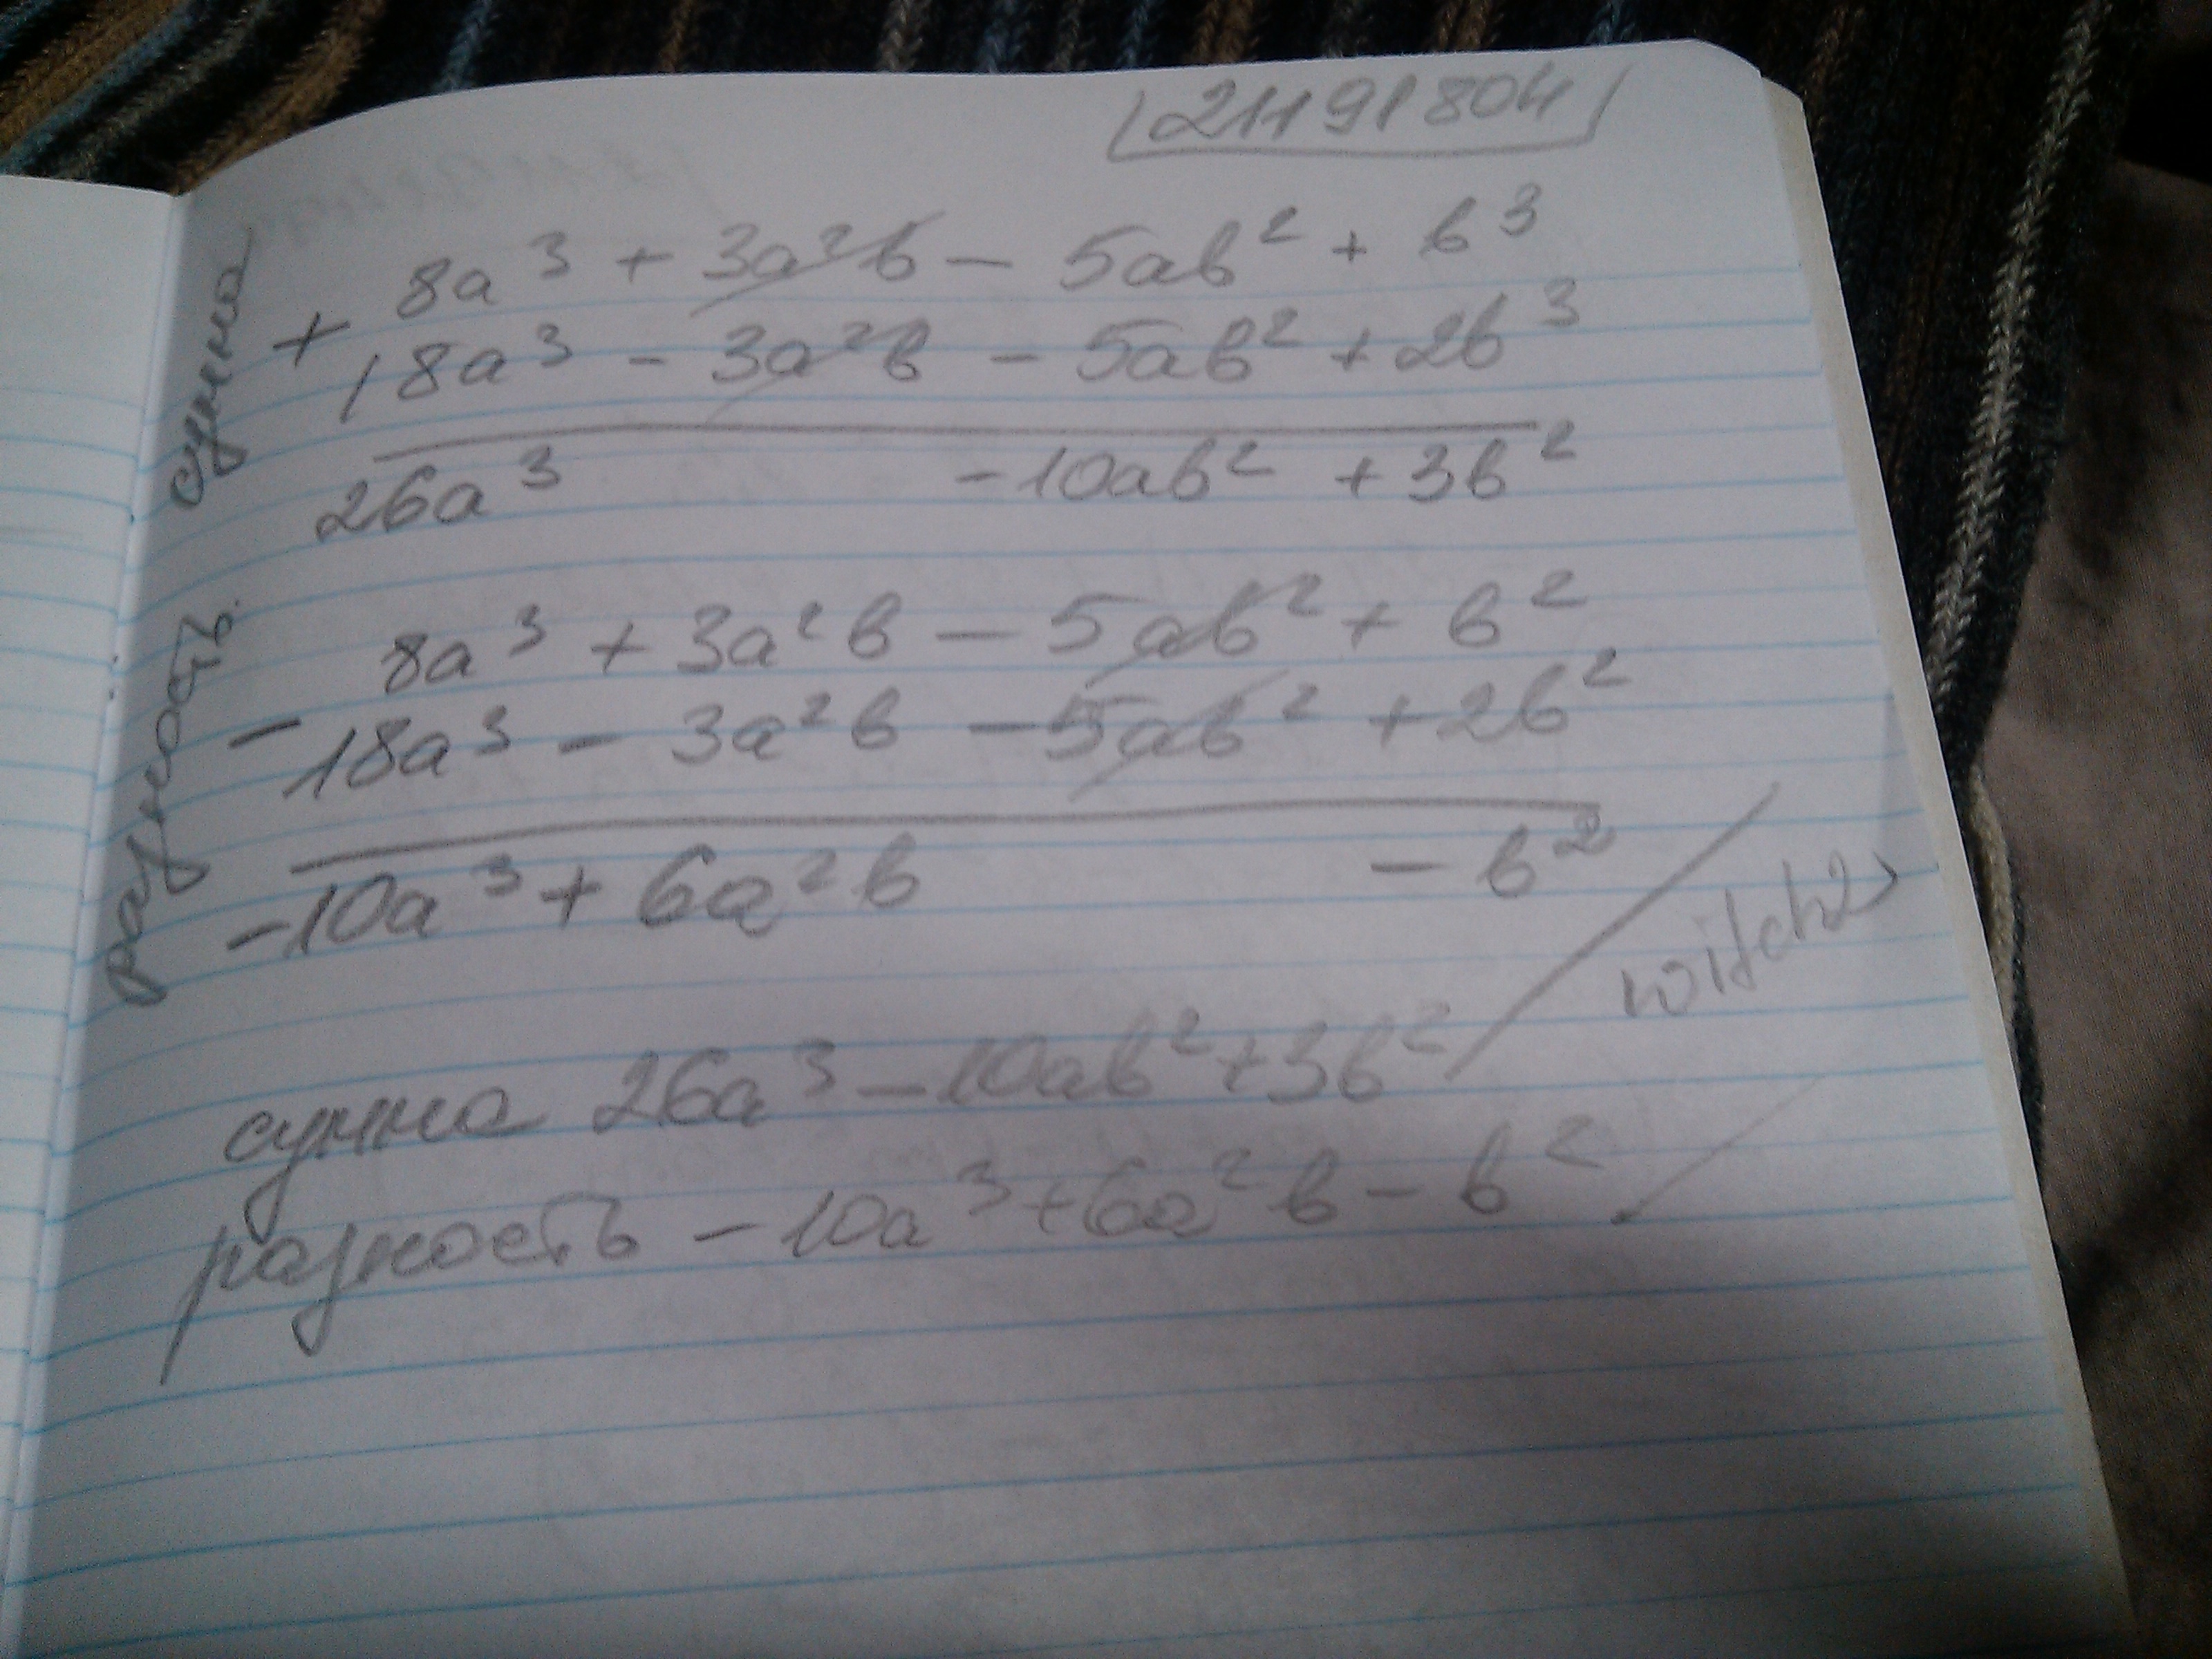 21191804
сумма
+ 8a³ + 3a²b − 5ab² + b³
18a³ − 3a²b − 5ab² + 2b³
26a³ − 10ab² + 3b²
разность
− 8a³ + 3a²b − 5ab² + b²
18a³ − 3a²b − 5ab² + 2b²
−10a³ + 6a²b − b²
witch2
сумма 26a³ − 10ab² + 3b²
разность − 10a³ + 6a²b − b²